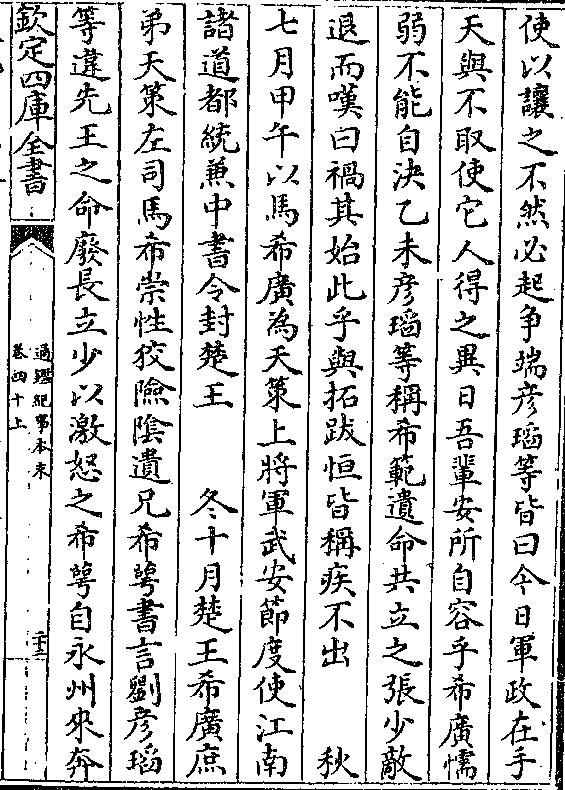 使以讓之不然必起爭端彦瑫等皆曰今日軍政在手
天與不取使它人得之異日吾輩安所自容乎希廣懦
弱不能自決乙未彦瑫等稱希範遺命共立之張少敵
退而嘆曰禍其始此乎與拓跋恒皆稱疾不出　　秋
七月甲午以馬希廣為天策上將軍武安節度使江南
諸道都統兼中書令封楚王　　冬十月楚王希廣庶
弟天策左司馬希崇性狡險隂遺兄希萼書言劉彦瑫
等違先王之命廢長立少以激怒之希萼自永州來奔
欽定四庫全書
通鑑紀事本末
卷四十上